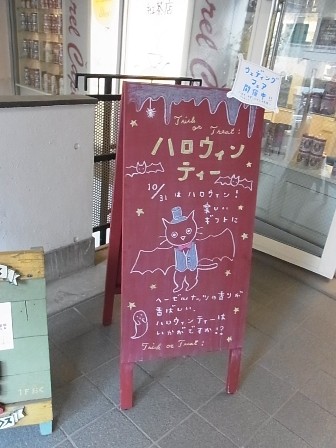 ウェディング
フェア
開催中
Trick
or Treat!
ハロウィン
ティー
10/31 はハロウィン!
楽しい
ギフトに
ヘーゼルナッツの香りが
香ばしい、
ハロウィンティーは
いかがですか!?
Trick or Treat!